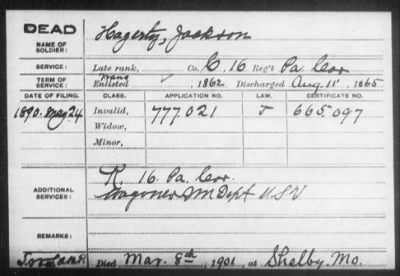 DEAD
NAME OF SOLDIER: Hagerty, Jackson
SERVICE: Late rank, Co. C, 16 Reg't Pa. Cav.
TERM OF SERVICE: Enlisted , 1862 Discharged Aug. 11", 1865
DATE OF FILING. CLASS. APPLICATION NO. LAW. CERTIFICATE NO.
1890. May 24 Invalid, 777.021 J 665.097
Widow,
Minor,
ADDITIONAL SERVICES: K 16. Pa. Cav.
Wagoner 2M Dept U.S.V
REMARKS:
Died Mar. 8th, 1901 at Shelby, Mo.